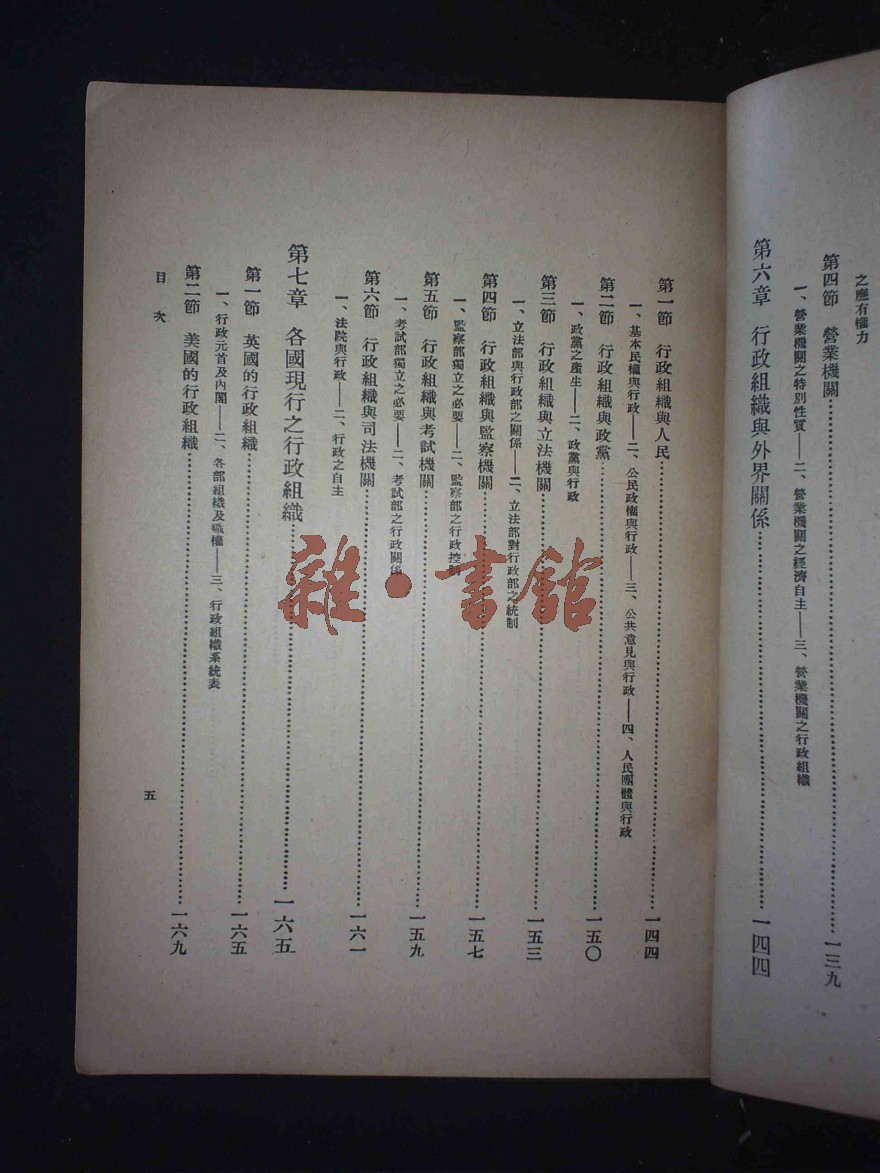 之應有權力
第四節 營業機關……一三九
一、營業機關之特別性質——二、營業機關之經濟自主——三、營業機關之行政組織
第六章 行政組織與外界關係……一四四
第一節 行政組織與人民……一四四
一、基本民權與行政——二、公民政權與行政——三、公共意見與行政——四、人民團體與行政
第二節 行政組織與政黨……一五〇
一、政黨之產生——二、政黨與行政
第三節 行政組織與立法機關……一五三
一、立法部與行政部之關係——二、立法部對行政部之統制
第四節 行政組織與監察機關……一五七
一、監察部獨立之必要——二、監察部之行政控制
第五節 行政組織與考試機關……一五九
一、考試部獨立之必要——二、考試部之行政關係
第六節 行政組織與司法機關……一六一
一、法院與行政——二、行政之自主
第七章 各國現行之行政組織……一六五
第一節 英國的行政組織……一六五
一、行政元首及內閣——二、各部組織及職權——三、行政組織系統表
第二節 美國的行政組織……一六九
目次
五
雜·書館